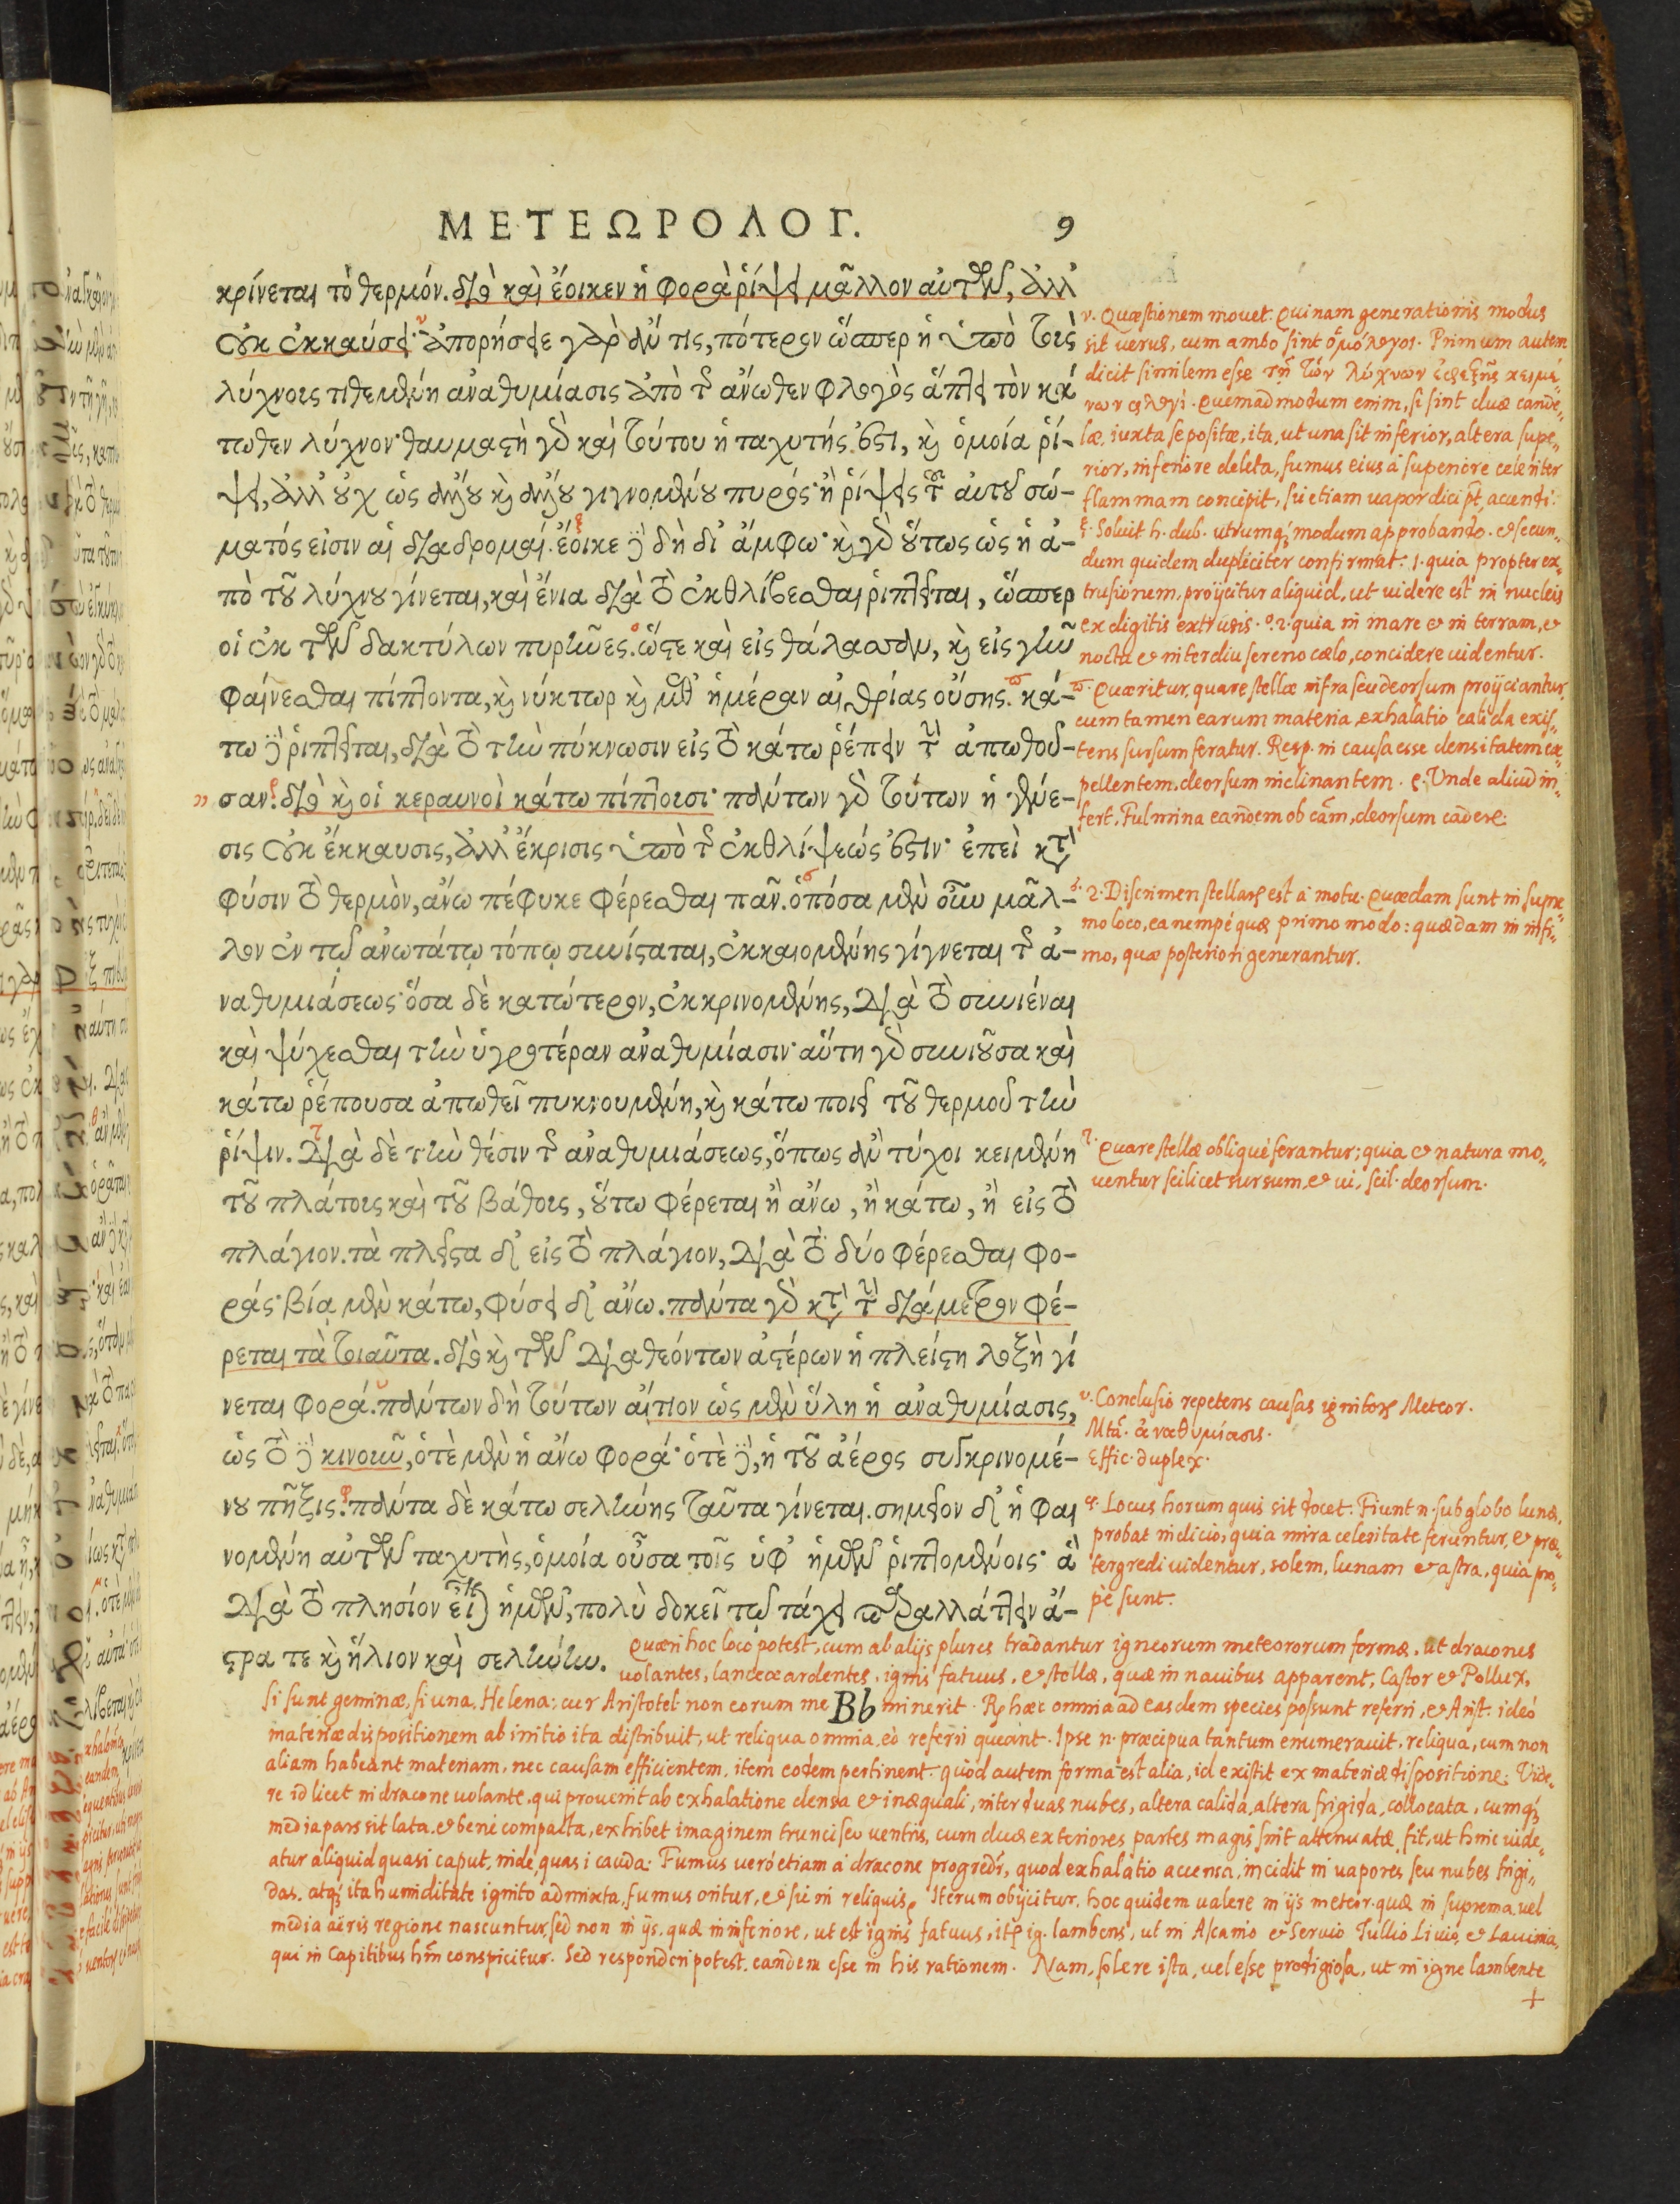 ΜΕΤΕΩΡΟΛΟΓ. 9
κρίνεται τὸ θερμόν. διὸ καὶ ἔοικεν ἡ φορὰ ῥίψει μᾶλλον αὐτῶν, ἀλλ'
οὐκ ἐκκαύσει· ἀπορήσειε γὰρ ἄν τις, πότερον ὥσπερ ἡ ὑπὸ τοὺς
λύχνους τιθεμένη ἀναθυμίασις ἀπὸ τῆς ἄνωθεν φλογὸς ἅπτει τὸν κά
τωθεν λύχνον· θαυμαστὴ γὰρ καὶ τούτου ἡ ταχυτής ἐστι, καὶ ὁμοία ῥί-
ψει, ἀλλ' οὐχ ὡς ἄλλου καὶ ἄλλου γιγνομένου πυρός· ἢ ῥίψεις τοῦ αὐτοῦ σώ-
ματός εἰσιν αἱ διαδρομαί. ἔοικε δὲ δὴ δι' ἄμφω· καὶ γὰρ οὕτως ὡς ἡ ἀ-
πὸ τοῦ λύχνου γίνεται, καὶ ἔνια διὰ τὸ ἐκθλίβεσθαι ῥιπτεῖται, ὥσπερ
οἱ ἐκ τῶν δακτύλων πυρῆνες. ὥστε καὶ εἰς θάλασσαν, καὶ εἰς γῆν
φαίνεσθαι πίπτοντα, καὶ νύκτωρ καὶ μεθ' ἡμέραν αἰθρίας οὔσης. κά-
τω δὲ ῥιπτεῖται, διὰ τὸ τὴν πύκνωσιν εἰς τὸ κάτω ῥέπειν τὴν ἀπωθοῦ-
σαν. διὸ καὶ οἱ κεραυνοὶ κάτω πίπτουσι· πάντων γὰρ τούτων ἡ γένε-
σις οὐκ ἔκκαυσις, ἀλλ' ἔκρισις ὑπὸ τῆς ἐκθλίψεώς ἐστιν· ἐπεὶ κατὰ
φύσιν τὸ θερμὸν, ἄνω πέφυκε φέρεσθαι πᾶν. ὁπόσα μὲν οὖν μᾶλ-
λον ἐν τῷ ἀνωτάτῳ τόπῳ συνίσταται, ἐκκαιομένης γίγνεται τῆς ἀ-
ναθυμιάσεως· ὅσα δὲ κατώτερον, ἐκκρινομένης, διὰ τὸ συνιέναι
καὶ ψύχεσθαι τὴν ὑγροτέραν ἀναθυμίασιν· αὕτη γὰρ συνιοῦσα καὶ
κάτω ῥέπουσα ἀπωθεῖ πυκνουμένη, καὶ κάτω ποιεῖ τοῦ θερμοῦ τὴν
ῥίψιν. διὰ δὲ τὴν θέσιν τῆς ἀναθυμιάσεως, ὅπως ἂν τύχοι κειμένη
τοῦ πλάτους καὶ τοῦ βάθους, οὕτω φέρεται ἢ ἄνω, ἢ κάτω, ἢ εἰς τὸ
πλάγιον. τὰ πλεῖστα δ' εἰς τὸ πλάγιον, διὰ τὸ δύο φέρεσθαι φο-
ράς· βίᾳ μὲν κάτω, φύσει δ' ἄνω. πάντα γὰρ κατὰ τὴν διάμετρον φέ-
ρεται τὰ τοιαῦτα. διὸ καὶ τῶν διαθεόντων ἀστέρων ἡ πλείστη λοξὴ γί
νεται φορά. πάντων δὴ τούτων αἴτιον ὡς μὲν ὕλη ἡ ἀναθυμίασις,
ὡς τὸ δὲ κινοῦν, ὁτὲ μὲν ἡ ἄνω φορά· ὁτὲ δὲ, ἡ τοῦ ἀέρος συγκρινομέ-
νου πῆξις. πάντα δὲ κάτω σελήνης ταῦτα γίνεται. σημεῖον δ' ἡ φαι
νομένη αὐτῶν ταχυτὴς, ὁμοία οὖσα τοῖς ὑφ' ἡμῶν ῥιπτομένοις· ἃ
διὰ τὸ πλησίον εἶναι ἡμῶν, πολὺ δοκεῖ τῷ τάχει παραλλάττειν ἄ-
στρα τε καὶ ἥλιον καὶ σελήνην.
Bb
ν. Quæstionem mouet. Quinam generationis modus
sit uerus, cum ambo sint ὁμόλογοι. Primum autem
dicit similem esse τῇ τῶν λύχνων ἐφεξῆς κειμέ-
νων φλογί. Quemadmodum enim, si sint duæ cande-
læ, iuxta se positæ, ita, ut una sit inferior, altera supe-
rior, inferiore deleta, fumus eius à superiore celeriter
flammam concipit, sic etiam uapor dici pt accendi.
ξ. Soluit h. dub. utrumq; modum approbando. et secun-
dum quidem dupliciter confirmat. 1. quia propter ex-
trusionem, proijcitur aliquid, ut uidere est in nucleis
ex digitis extrusis. ο. 2. quia in mare et in terram, et
noctu et interdiu sereno cælo, concidere uidentur.
π. Quæritur, quare stellæ infra seu deorsum proijciantur,
cum tamen earum materia, exhalatio calida exis-
tens sursum feratur. Resp. in causa esse densitatem ex-
pellentem, deorsum inclinantem. ρ. Unde aliud in-
fert, Fulmina eandem ob cām, deorsum cadere.
σ. 2. Discrimen stellarum est à motu. Quædam sunt in supre-
mo loco, ea nempè quæ primo modo: quædam in infi-
mo, quæ posteriori generantur.
τ. Quare stellæ obliquè ferantur; quia et natura mo-
uentur scilicet sursum, et ui, scil. deorsum.
υ. Conclusio repetens causas ignitorum Meteor.
Mta. ἀναθυμίασις.
Effic. duplex.
φ. Locus horum quis sit docet. Fiunt n. sub globo lunæ.
probat indicio, quia mira celeritate feruntur, et præ-
tergredi uidentur, solem, lunam et astra, quia pro-
pè sunt.
Quæri hoc loco potest, cum ab alijs plures tradantur igneorum meteororum formæ, ut dracones
uolantes, lanceæ ardentes, ignis fatuus, et stellæ, quæ in nauibus apparent, Castor et Pollux,
si sunt geminæ, si una, Helena; cur Aristotel. non eorum meminerit. Rs hæc omnia ad easdem species possunt referri, et Arist. ideò
materiæ dispositionem ab initio ita distribuit, ut reliqua omnia, eò referri queant. Ipse n. præcipua tantum enumerauit, reliqua, cum non
aliam habeant materiam, nec causam efficientem, item eodem pertinent. quòd autem forma est alia, id existit ex materiæ dispositione. Vide-
re id licet in dracone uolante, qui prouenit ab exhalatione densa et inæquali, inter duas nubes, altera calida, altera frigida, collocata, cumq;
media pars sit lata, et bene compacta, exhibet imaginem trunci seu uentris, cum duæ exteriores partes magis sint attenuatæ, fit, ut hinc uide-
atur aliquid quasi caput, inde quasi cauda. Fumus uerò etiam à dracone progredr, quod exhalatio accensa, incidit in uapores seu nubes frigi-
das, atq; ita humiditate ignito admixta, fumus oritur, et sic in reliquis. Iterum obijcitur, hoc quidem ualere in ijs meteor. quæ in suprema uel
media aëris regione nascuntur, sed non in ijs, quæ in inferiore, ut est ignis fatuus, ig. lambens, ut in Ascanio et Seruio Tullio Liuio, et Lauinia,
qui in Capitibus hm conspicitur. Sed responderi potest, eandem esse in his rationem. Nam, solere ista, uel esse prodigiosa, ut in igne lambente
+